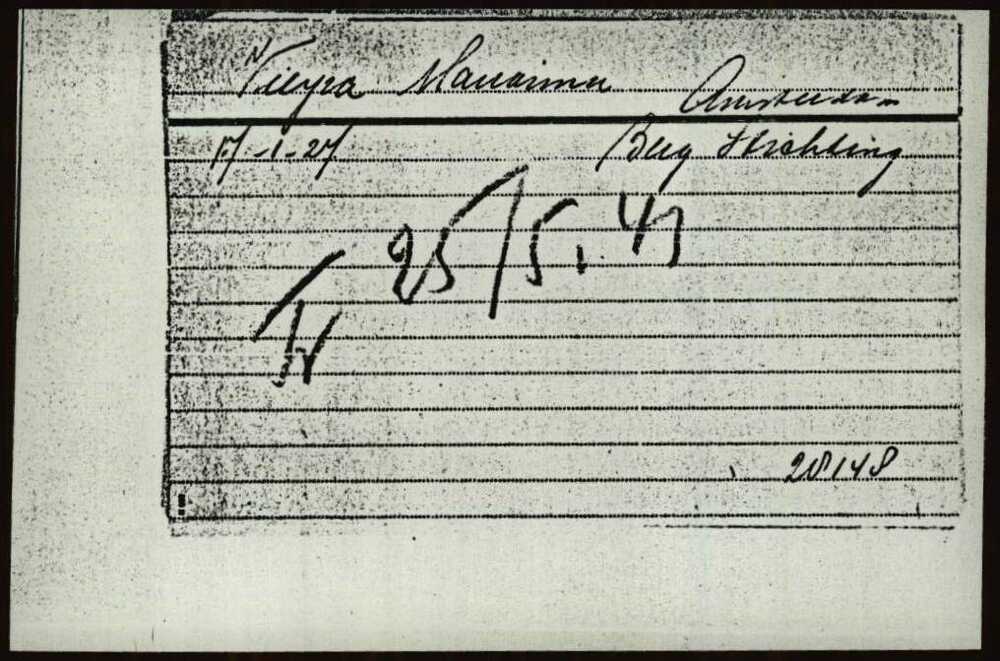 Vieyra Amsterdam
17-1-27 Berg Stichting
25/5.43
Tr
28148